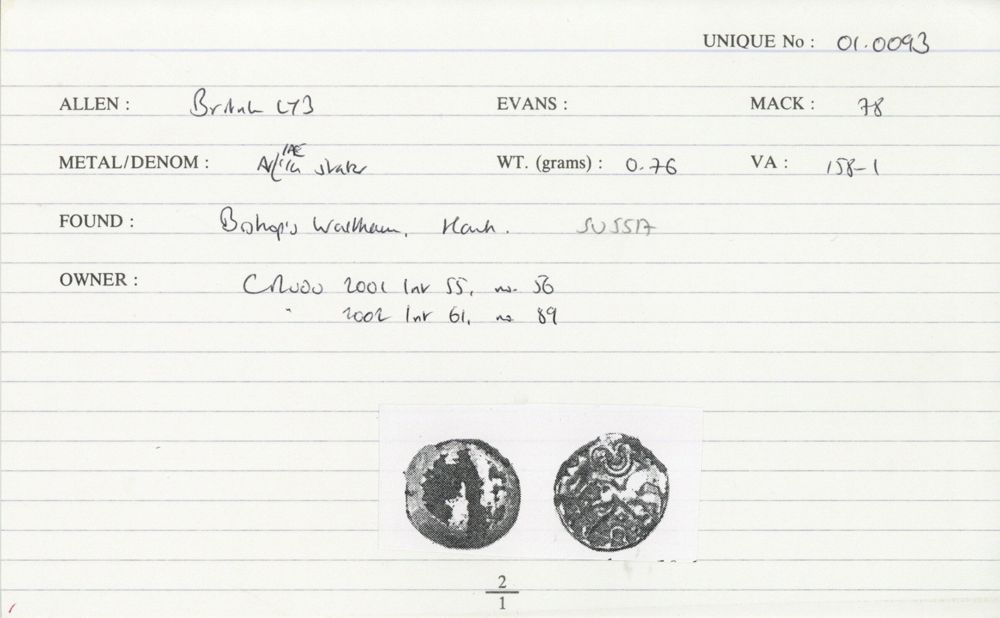 UNIQUE No : 01.0093
ALLEN : British LY3 EVANS : MACK : 78
METAL/DENOM : /AE stater WT. (grams) : 0.76 VA : 158-1
FOUND : Bishop's Waltham, Hants. SU 5517
OWNER : CR000 2001 Inv 55, no. 56
" 2002 Inv 61, no. 89
2
1